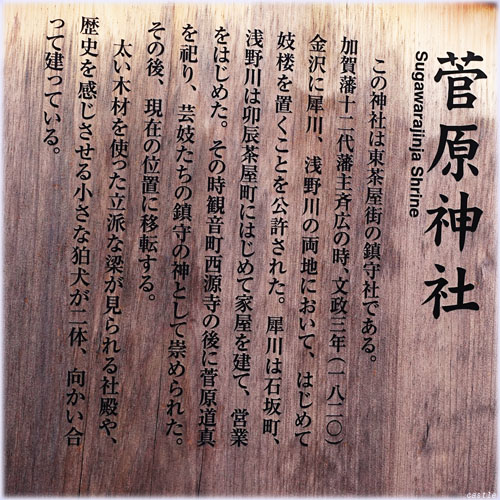 菅原神社
Sugawarajinja Shrine
この神社は東茶屋街の鎮守社である。
加賀藩十二代藩主斉広の時、文政三年(一八二〇)
金沢に犀川、浅野川の両地において、はじめて
妓楼を置くことを公許された。犀川は石坂町、
浅野川は卯辰茶屋町にはじめて家屋を建て、営業
をはじめた。その時観音町西源寺の後に菅原道真
を祀り、芸妓たちの鎮守の神として崇められた。
その後、現在の位置に移転する。
太い木材を使った立派な梁が見られる社殿や、
歴史を感じさせる小さな狛犬が二体、向かい合
って建っている。
castle